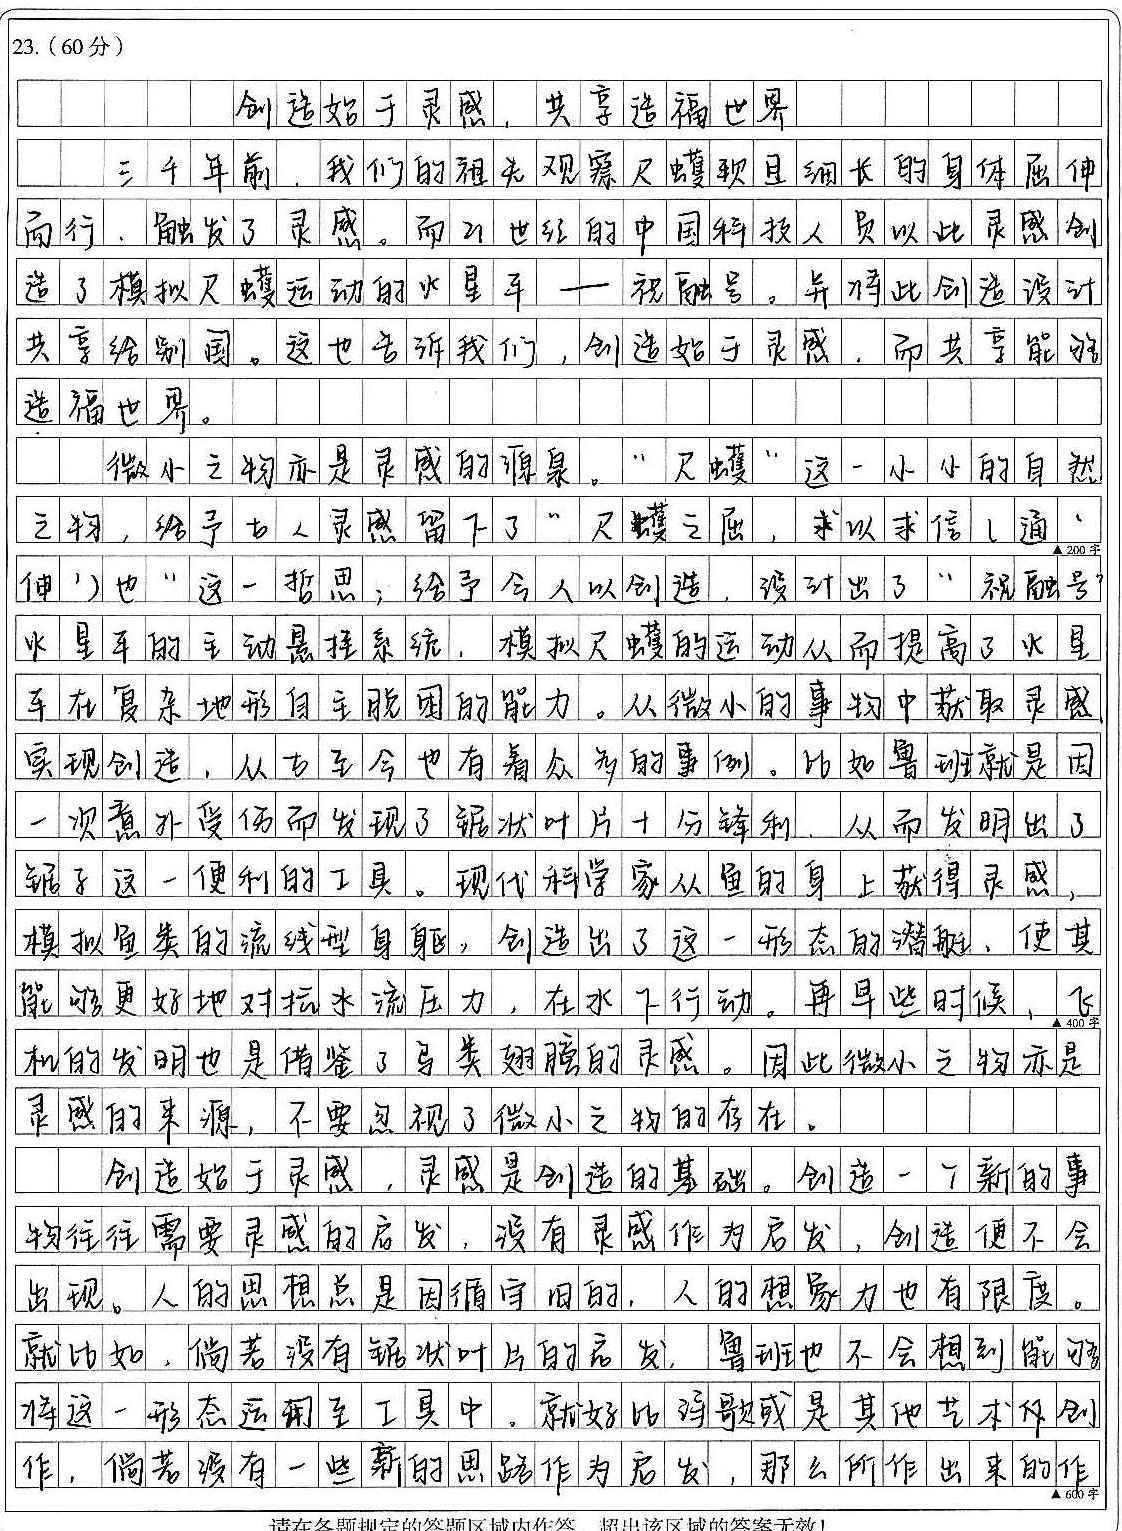 23.（60分）
创造始于灵感，共享造福世界
三千年前，我们的祖先观察尺蠖软且细长的身体屈伸
而行，触发了灵感。而21世纪的中国科技人员以此灵感创
造了模拟尺蠖运动的火星车——祝融号。并将此创造设计
共享给别国。这也告诉我们，创造始于灵感，而共享能够
造福世界。
微小之物亦是灵感的源泉。"尺蠖"这一小小的自然
之物，给予古人灵感留下了"尺蠖之屈，求以求信（通'
▲200字
伸'）也"这一哲思；给予今人以创造，设计出了"祝融号"
火星车的主动悬挂系统，模拟尺蠖的运动从而提高了火星
车在复杂地形自主脱困的能力。从微小的事物中获取灵感
实现创造，从古至今也有着众多的事例。比如鲁班就是因
一次意外受伤而发现了锯状叶片十分锋利，从而发明出了
锯子这一便利的工具。现代科学家从鱼的身上获得灵感，
模拟鱼类的流线型身躯，创造出了这一形态的潜艇，使其
能够更好地对抗水流压力，在水下行动。再早些时候，飞
▲400字
机的发明也是借鉴了鸟类翅膀的灵感。因此微小之物亦是
灵感的来源，不要忽视了微小之物的存在。
创造始于灵感，灵感是创造的基础。创造一个新的事
物往往需要灵感的启发，没有灵感作为启发，创造便不会
出现。人的思想总是因循守旧的，人的想象力也有限度。
就比如，倘若没有锯状叶片的启发，鲁班也不会想到能够
将这一形态运用至工具中。就好比诗歌或是其他艺术作创
作，倘若没有一些新的思路作为启发，那么所作出来的作
▲600字
请在各题规定的答题区域内作答，超出该区域的答案无效！